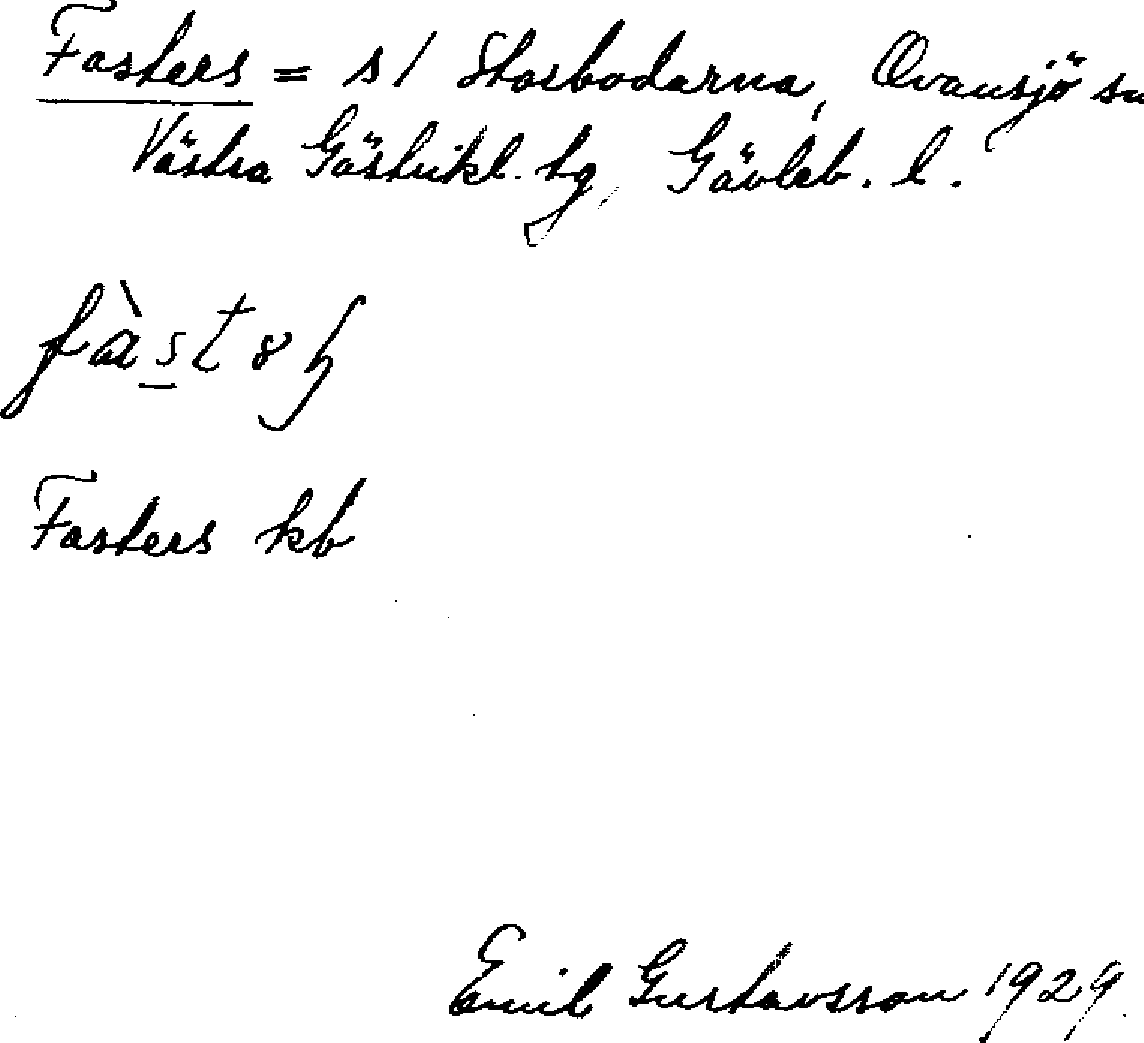 Fasters = s/ Storbodarna, Ovansjö sn
Västra Gästrikl. tg, Gävleb. l.
fàstəş
Fasters kb
Emil Gustavsson 1929.